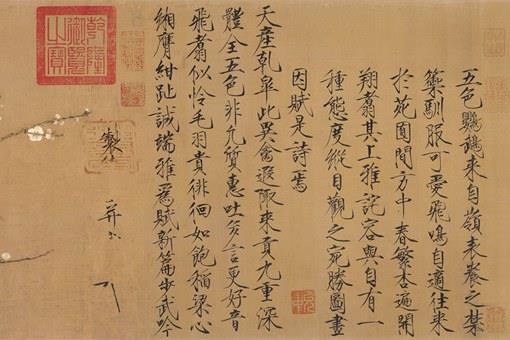 五色鸚鵡來自嶺表養之禁
籞馴服可愛飛鳴自適往來
於苑囿間方中春繁杏遍開
翔翥其上雅詫容與自有一
種態度縱目觀之宛勝圖畫
因賦是詩焉
天產乾皋此異禽遐陬來貢九重深
體全五色非凡質惠吐多言更好音
飛翥似憐毛羽貴徘徊如飽稻粱心
緗膺紺趾誠端雅為賦新篇步武吟
乾隆
御覽
之寶
製
并書